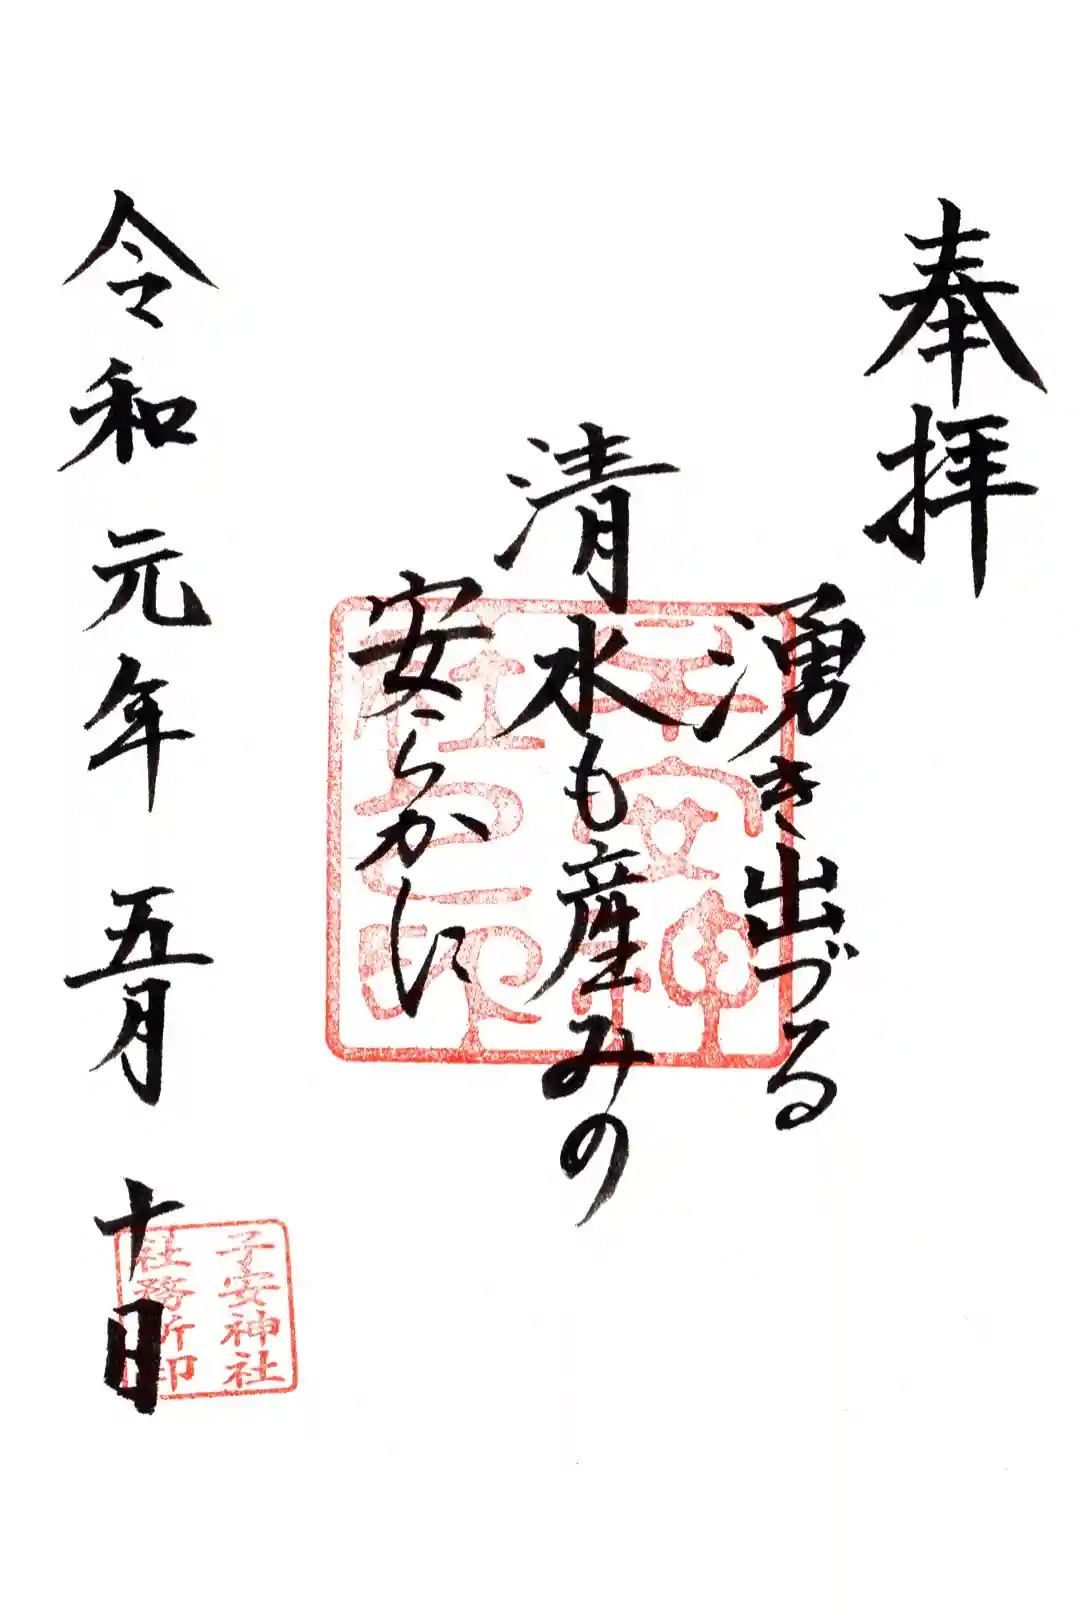 奉拝
湧き出づる
清水も産みの
安らかに
令和元年 五月 十日
子安神社
社務所印